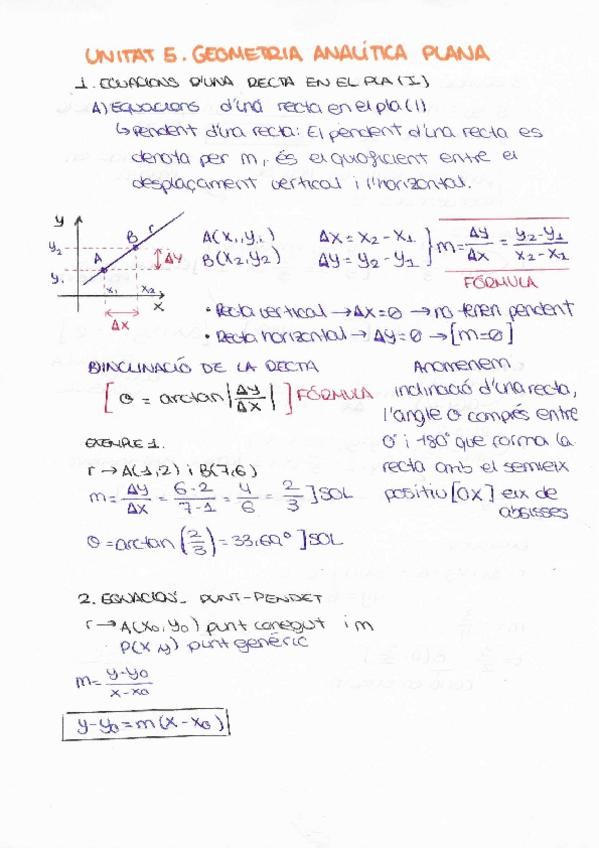 UNITAT 5. GEOMETRIA ANALÍTICA PLANA
1. EQUACIONS D'UNA RECTA EN EL PLA (I)
A) EQUACIONS d'una recta en el pla (1)
↳ Pendent d'una recta: El pendent d'una recta es
denota per m, és el quoficient entre el
desplaçament vertical i l'horitzontal.
y
r
B
y₂
A
Δy
y₁
x₁ x₂
x
Δx
A(x₁,y₁) Δx = x₂ - x₁
B(x₂,y₂) Δy = y₂ - y₁ } m = Δy/Δx = y₂-y₁/x₂-x₁
FÓRMULA
• Recta vertical → Δx=0 → no tenen pendent
• Recta horizontal → Δy=0 → [m=0]
B) INCLINACIÓ DE LA RECTA
[ θ = arctan |Δy/Δx| ] FÓRMULA
Anomenem
inclinació d'una recta,
l'angle θ comprés entre
0° i 180° que forma la
recta amb el semieix
positiu [OX] eix de
absisses
EXEMPLE 1.
r → A(1,2) i B(7,6)
m = Δy/Δx = 6-2/7-1 = 4/6 = 2/3 ] SOL
θ = arctan (2/3) = 33,69° ] SOL
2. EQUACIONS PUNT-PENDET
r → A(x₀,y₀) punt conegut i m
P(x,y) punt genéric
m = y-y₀/x-x₀
y-y₀ = m(x-x₀)